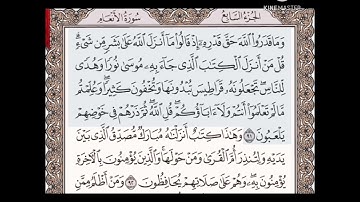 الجزء السابع
سورة الأنعام
MADE WITH
KINEMASTER
وَمَا قَدَرُوا۟ ٱللَّهَ حَقَّ قَدْرِهِۦٓ إِذْ قَالُوا۟ مَآ أَنزَلَ ٱللَّهُ عَلَىٰ بَشَرٍ مِّن شَىْءٍ
قُلْ مَنْ أَنزَلَ ٱلْكِتَـٰبَ ٱلَّذِى جَآءَ بِهِۦ مُوسَىٰ نُورًا وَهُدًى
لِّلنَّاسِ تَجْعَلُونَهُۥ قَرَاطِيسَ تُبْدُونَهَا وَتُخْفُونَ كَثِيرًا وَعُلِّمْتُم
مَّا لَمْ تَعْلَمُوٓا۟ أَنتُمْ وَلَآ ءَابَآؤُكُمْ قُلِ ٱللَّهُ ثُمَّ ذَرْهُمْ فِى خَوْضِهِمْ
يَلْعَبُونَ ٩١ وَهَـٰذَا كِتَـٰبٌ أَنزَلْنَـٰهُ مُبَارَكٌ مُّصَدِّقُ ٱلَّذِى بَيْنَ
يَدَيْهِ وَلِتُنذِرَ أُمَّ ٱلْقُرَىٰ وَمَنْ حَوْلَهَا وَٱلَّذِينَ يُؤْمِنُونَ بِٱلْـَٔاخِرَةِ
يُؤْمِنُونَ بِهِۦ وَهُمْ عَلَىٰ صَلَاتِهِمْ يُحَافِظُونَ ٩٢ وَمَنْ أَظْلَمُ مِمَّنِ